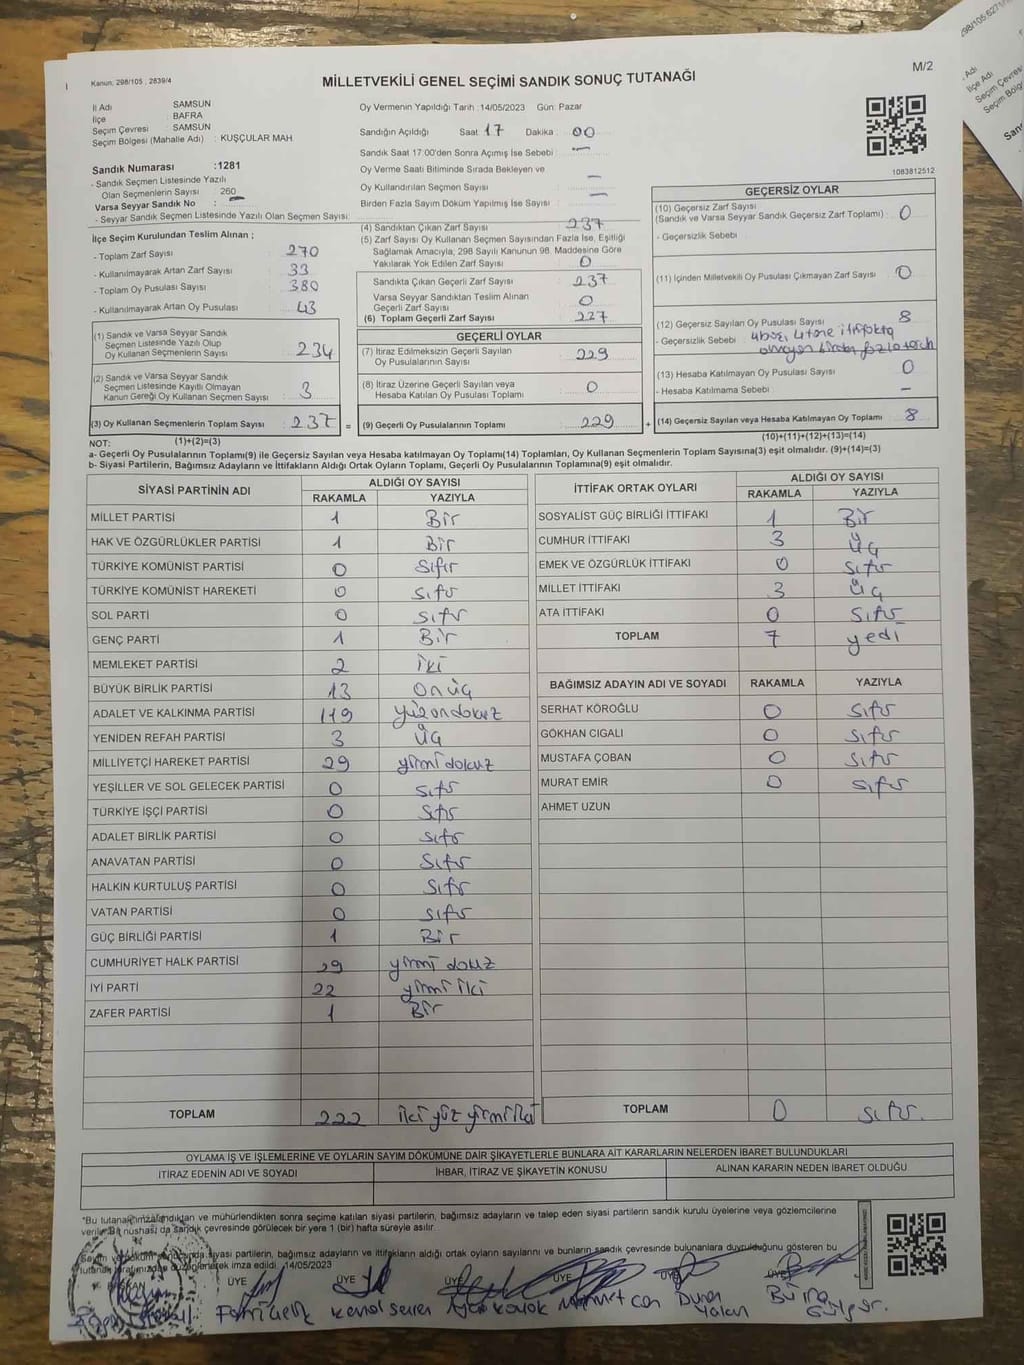 Kanun, 298/105 , 2839/4
M/2
MİLLETVEKİLİ GENEL SEÇİMİ SANDIK SONUÇ TUTANAĞI
İl Adı : SAMSUN
İlçe : BAFRA
Seçim Çevresi : SAMSUN
Seçim Bölgesi (Mahalle Adı) : KUŞÇULAR MAH
Sandık Numarası :1281
- Sandık Seçmen Listesinde Yazılı
Olan Seçmenlerin Sayısı : 260
Varsa Seyyar Sandık No : —
- Seyyar Sandık Seçmen Listesinde Yazılı Olan Seçmen Sayısı:
Oy Vermenin Yapıldığı Tarih :14/05/2023 Gün: Pazar
Sandığın Açıldığı Saat 17 Dakika : 00
Sandık Saat 17:00'den Sonra Açımış İse Sebebi : —
Oy Verme Saati Bitiminde Sırada Bekleyen ve
Oy Kullandırılan Seçmen Sayısı : —
Birden Fazla Sayım Döküm Yapılmış İse Sayısı : —
1083812512
İlçe Seçim Kurulundan Teslim Alınan ;
- Toplam Zarf Sayısı : 270
- Kullanılmayarak Artan Zarf Sayısı : 33
- Toplam Oy Pusulası Sayısı : 380
- Kullanılmayarak Artan Oy Pusulası : 43
(1) Sandık ve Varsa Seyyar Sandık
Seçmen Listesinde Yazılı Olup
Oy Kullanan Seçmenlerin Sayısı : 234
(2) Sandık ve Varsa Seyyar Sandık
Seçmen Listesinde Kayıtlı Olmayan
Kanun Gereği Oy Kullanan Seçmen Sayısı : 3
(3) Oy Kullanan Seçmenlerin Toplam Sayısı : 237 =
(4) Sandıktan Çıkan Zarf Sayısı : 237
(5) Zarf Sayısı Oy Kullanan Seçmen Sayısından Fazla İse, Eşitliği
Sağlamak Amacıyla, 298 Sayılı Kanunun 98. Maddesine Göre
Yakılarak Yok Edilen Zarf Sayısı : 0
Sandıkta Çıkan Geçerli Zarf Sayısı : 237
Varsa Seyyar Sandıktan Teslim Alınan
Geçerli Zarf Sayısı : 0
(6) Toplam Geçerli Zarf Sayısı : 227
GEÇERLİ OYLAR
(7) İtiraz Edilmeksizin Geçerli Sayılan
Oy Pusulalarının Sayısı : 229
(8) İtiraz Üzerine Geçerli Sayılan veya
Hesaba Katılan Oy Pusulası Toplamı : 0
(9) Geçerli Oy Pusulalarının Toplamı : 229 +
GEÇERSİZ OYLAR
(10) Geçersiz Zarf Sayısı
(Sandık ve Varsa Seyyar Sandık Geçersiz Zarf Toplamı) : 0
- Geçersizlik Sebebi :
(11) İçinden Milletvekili Oy Pusulası Çıkmayan Zarf Sayısı : 0
(12) Geçersiz Sayılan Oy Pusulası Sayısı : 8
- Geçersizlik Sebebi : 4boş, 4tane ittifakta
olmayan birden fazla tercih
(13) Hesaba Katılmayan Oy Pusulası Sayısı : 0
- Hesaba Katılmama Sebebi : —
(14) Geçersiz Sayılan veya Hesaba Katılmayan Oy Toplamı : 8
NOT: (1)+(2)=(3)
(10)+(11)+(12)+(13)=(14)
a- Geçerli Oy Pusulalarının Toplamı(9) ile Geçersiz Sayılan veya Hesaba katılmayan Oy Toplamı(14) Toplamları, Oy Kullanan Seçmenlerin Toplam Sayısına(3) eşit olmalıdır. (9)+(14)=(3)
b- Siyasi Partilerin, Bağımsız Adayların ve İttifakların Aldığı Ortak Oyların Toplamı, Geçerli Oy Pusulalarının Toplamına(9) eşit olmalıdır.
SİYASİ PARTİNİN ADI ALDIĞI OY SAYISI
RAKAMLA YAZIYLA
MİLLET PARTİSİ 1 Bir
HAK VE ÖZGÜRLÜKLER PARTİSİ 1 Bir
TÜRKİYE KOMÜNİST PARTİSİ 0 Sıfır
TÜRKİYE KOMÜNİST HAREKETİ 0 sıfır
SOL PARTİ 0 sıfır
GENÇ PARTİ 1 Bir
MEMLEKET PARTİSİ 2 iki
BÜYÜK BİRLİK PARTİSİ 13 onüç
ADALET VE KALKINMA PARTİSİ 119 yüzondokuz
YENİDEN REFAH PARTİSİ 3 üç
MİLLİYETÇİ HAREKET PARTİSİ 29 yirmi dokuz
YEŞİLLER VE SOL GELECEK PARTİSİ 0 sıfır
TÜRKİYE İŞÇİ PARTİSİ 0 sıfır
ADALET BİRLİK PARTİSİ 0 sıfır
ANAVATAN PARTİSİ 0 sıfır
HALKIN KURTULUŞ PARTİSİ 0 sıfır
VATAN PARTİSİ 0 sıfır
GÜÇ BİRLİĞİ PARTİSİ 1 Bir
CUMHURİYET HALK PARTİSİ 29 yirmi dokuz
İYİ PARTİ 22 yirmi iki
ZAFER PARTİSİ 1 Bir
TOPLAM 222 iki yüz yirmi iki
İTTİFAK ORTAK OYLARI ALDIĞI OY SAYISI
RAKAMLA YAZIYLA
SOSYALİST GÜÇ BİRLİĞİ İTTİFAKI 1 Bir
CUMHUR İTTİFAKI 3 üç
EMEK VE ÖZGÜRLÜK İTTİFAKI 0 sıfır
MİLLET İTTİFAKI 3 üç
ATA İTTİFAKI 0 sıfır
TOPLAM 7 yedi
BAĞIMSIZ ADAYIN ADI VE SOYADI RAKAMLA YAZIYLA
SERHAT KÖROĞLU 0 sıfır
GÖKHAN CIGALI 0 sıfır
MUSTAFA ÇOBAN 0 sıfır
MURAT EMİR 0 sıfır
AHMET UZUN
TOPLAM 0 sıfır.
OYLAMA İŞ VE İŞLEMLERİNE VE OYLARIN SAYIM DÖKÜMÜNE DAİR ŞİKAYETLERLE BUNLARA AİT KARARLARIN NELERDEN İBARET BULUNDUKLARI
İTİRAZ EDENİN ADI VE SOYADI İHBAR, İTİRAZ VE ŞİKAYETİN KONUSU ALINAN KARARIN NEDEN İBARET OLDUĞU
*Bu tutanak imzalandıktan ve mühürlendikten sonra seçime katılan siyasi partilerin, bağımsız adayların ve talep eden siyasi partilerin sandık kurulu üyelerine veya gözlemcilerine
verilir. Bir nüshası da sandık çevresinde görülecek bir yere 1 (bir) hafta süreyle asılır.
siyasi partilerin, bağımsız adayların ve ittifakların aldığı ortak oyların sayılarını ve bunların sandık çevresinde bulunanlara duyrulduğunu gösteren bu
tutanak tarafımızdan düzenlenerek imza edildi. 14/05/2023
BAŞKAN ÜYE ÜYE ÜYE ÜYE ÜYE ÜYE
Fahri Çelik Kemal Seren Mehmet Can Duran
Yalan